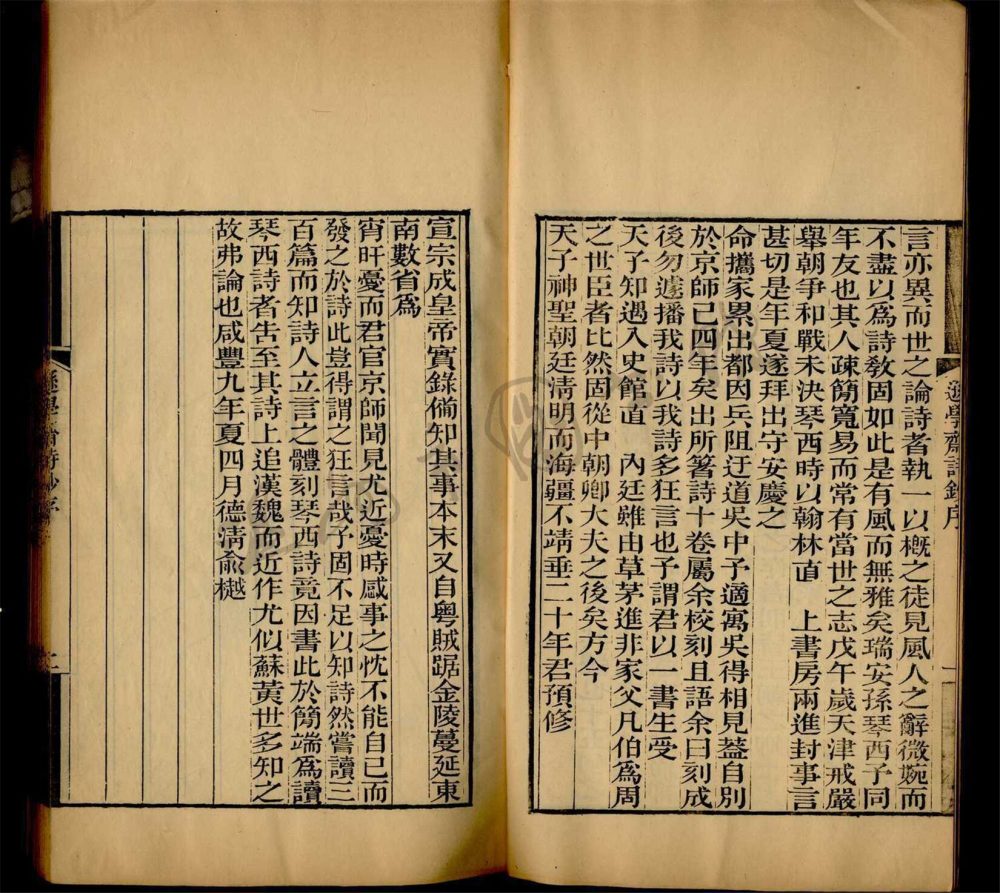 言亦異而世之論詩者執一以概之徒見風人之辭微婉而
不盡以爲詩敎固如此是有風而無雅矣瑞安孫琴西予同
年友也其人疎簡寬易而常有當世之志戊午歲天津戒嚴
舉朝爭和戰未決琴西時以翰林直　上書房兩進封事言
甚切是年夏遂拜出守安慶之
命攜家累出都因兵阻迂道吳中予適寓吳得相見蓋自別
於京師已四年矣出所箸詩十卷屬余校刻且語余曰刻成
後勿遽播我詩以我詩多狂言也予謂君以一書生受
天子知遇入史館直　內廷雖由草茅進非家父凡伯爲周
之世臣者比然固從中朝卿大夫之後矣方今
天子神聖朝廷淸明而海疆不靖垂二十年君預修
遜學齋詩鈔序
一
宣宗成皇帝實錄僃知其事本末又自粵賊踞金陵蔓延東
南數省爲
宵旰憂而君官京師聞見尤近憂時感事之忱不能自已而
發之於詩此豈得謂之狂言哉予固不足以知詩然嘗讀三
百篇而知詩人立言之體刻琴西詩竟因書此於簡端爲讀
琴西詩者告至其詩上追漢魏而近作尤似蘇黃世多知之
故弗論也咸豐九年夏四月德淸俞樾
遜學齋詩鈔序
二